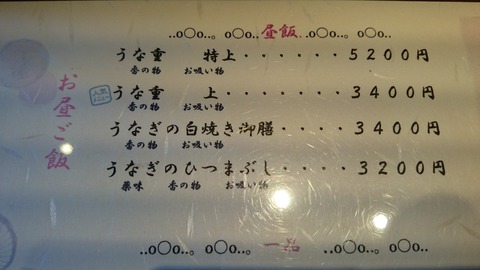 ..o○o..。o○o..。昼飯..o○o..。o○o..
お昼ご飯
うな重 特上・・・・・・5200円
香の物 お吸い物
人気メニュー
うな重 上・・・・・・3400円
香の物 お吸い物
うなぎの白焼き御膳・・・・3400円
香の物 お吸い物
うなぎのひつまぶし・・・・3200円
薬味 香の物 お吸い物
..o○o..。o○o..。一品 ..o○o..。o○o..